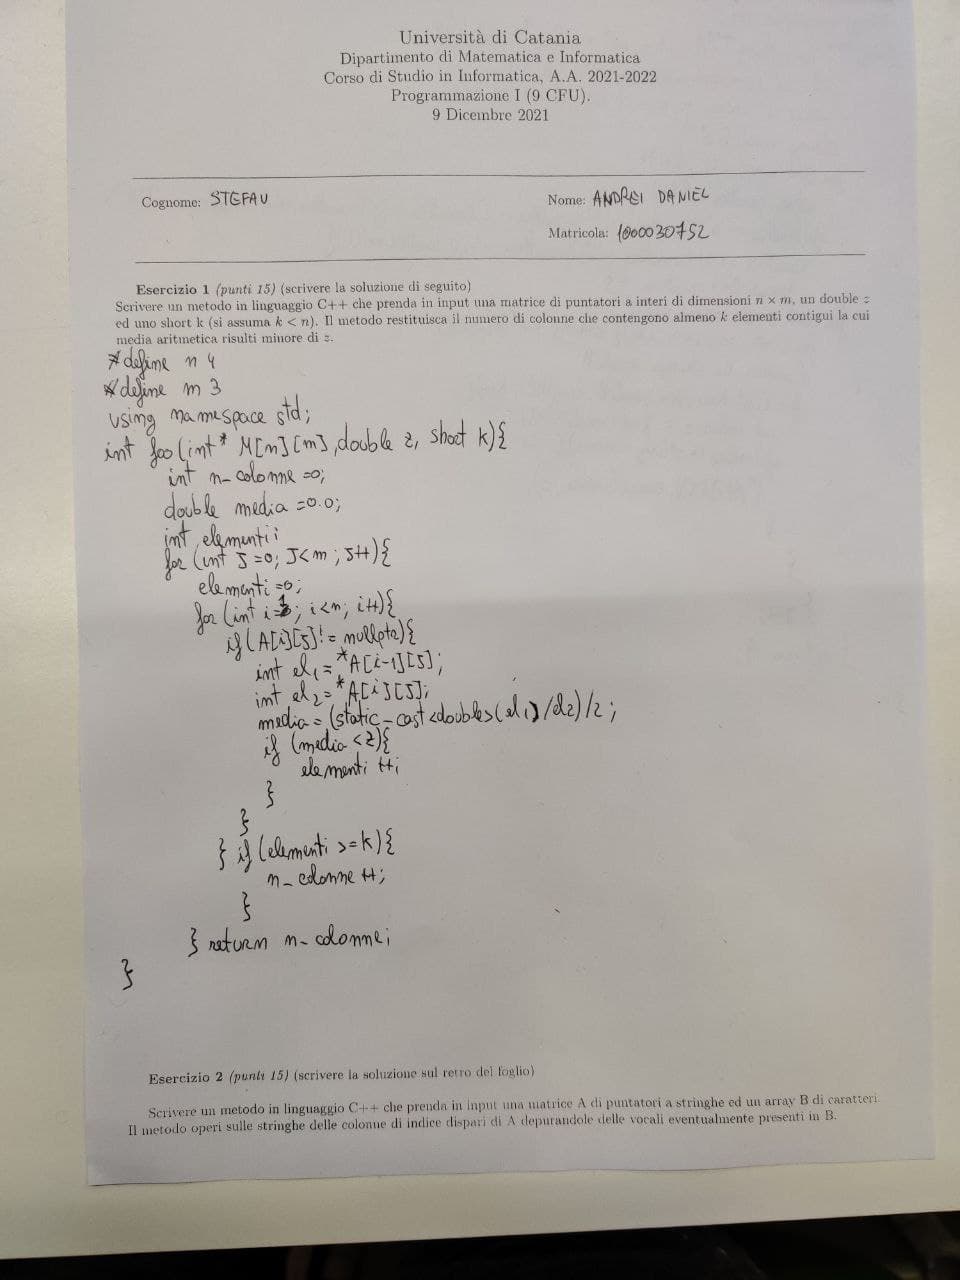 Università di Catania
Dipartimento di Matematica e Informatica
Corso di Studio in Informatica, A.A. 2021-2022
Programmazione I (9 CFU).
9 Dicembre 2021
Cognome: STEFAU
Nome: ANDREI DANIEL
Matricola: 1000030752
Esercizio 1 (punti 15) (scrivere la soluzione di seguito)
Scrivere un metodo in linguaggio C++ che prenda in input una matrice di puntatori a interi di dimensioni n × m, un double z
ed uno short k (si assuma k < n). Il metodo restituisca il numero di colonne che contengono almeno k elementi contigui la cui
media aritmetica risulti minore di z.
#define n 4
#define m 3
using namespace std;
int foo(int* M[n][m], double z, short k){
int n_colonne =0;
double media =0.0;
int elementi;
for (int J=0; J<m; J++){
elementi =0;
for (int i=1; i<n; i++){
if(A[i][J]!= nullptr){
int el1= *A[i-1][J];
int el2= *A[i][J];
media = (static_cast<double>(el1)/el2)/2;
if (media <z){
elementi ++;
}
}
} if (elementi >=k){
n_colonne ++;
}
} return n_colonne;
}
Esercizio 2 (punti 15) (scrivere la soluzione sul retro del foglio)
Scrivere un metodo in linguaggio C++ che prenda in input una matrice A di puntatori a stringhe ed un array B di caratteri.
Il metodo operi sulle stringhe delle colonne di indice dispari di A depurandole delle vocali eventualmente presenti in B.